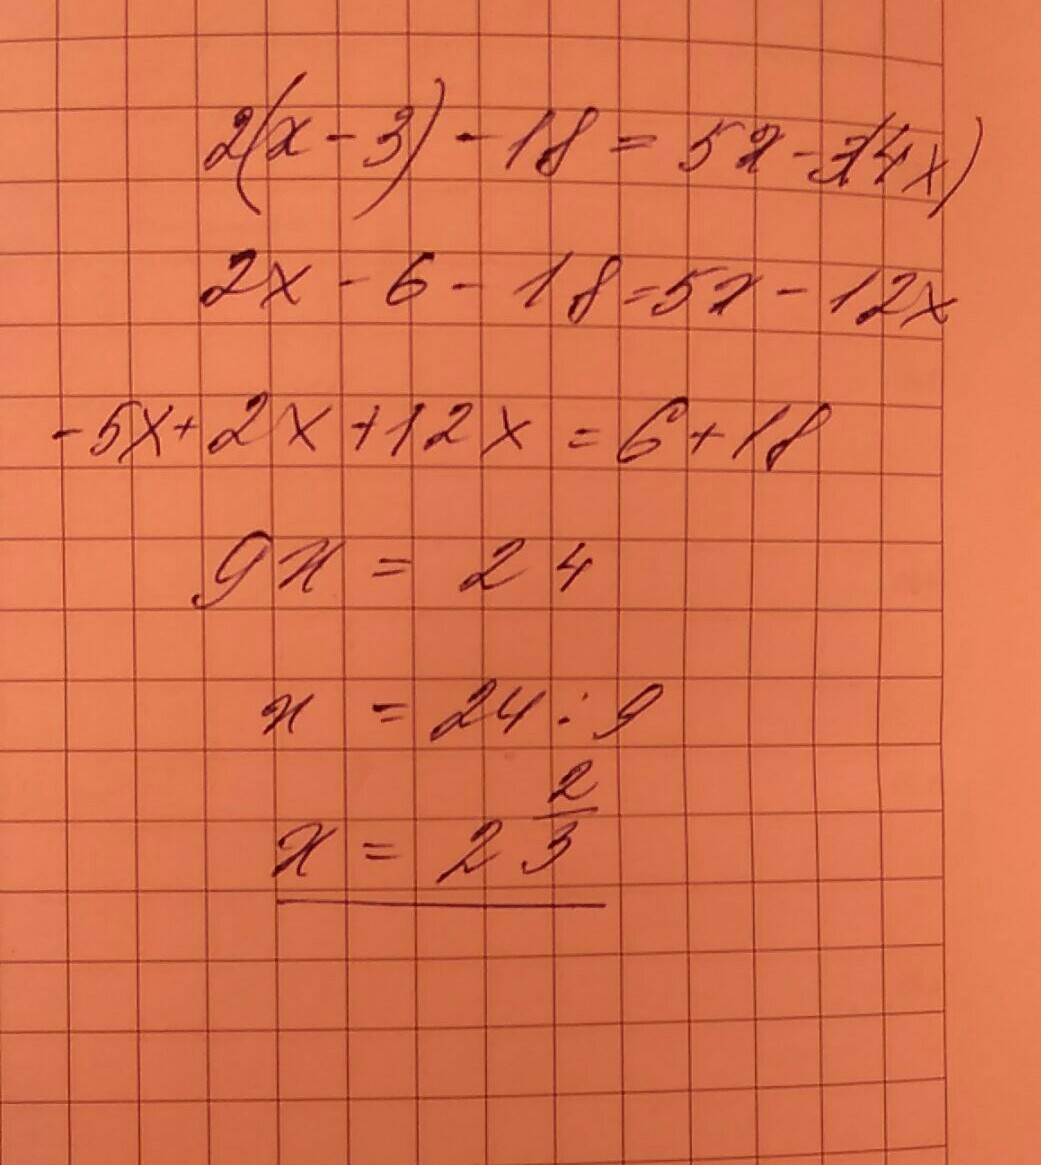 2(x - 3) - 18 = 5x - 3(4x)
2x - 6 - 18 = 5x - 12x
-5x + 2x + 12x = 6 + 18
9x = 24
x = 24 : 9
x = 2 2/3